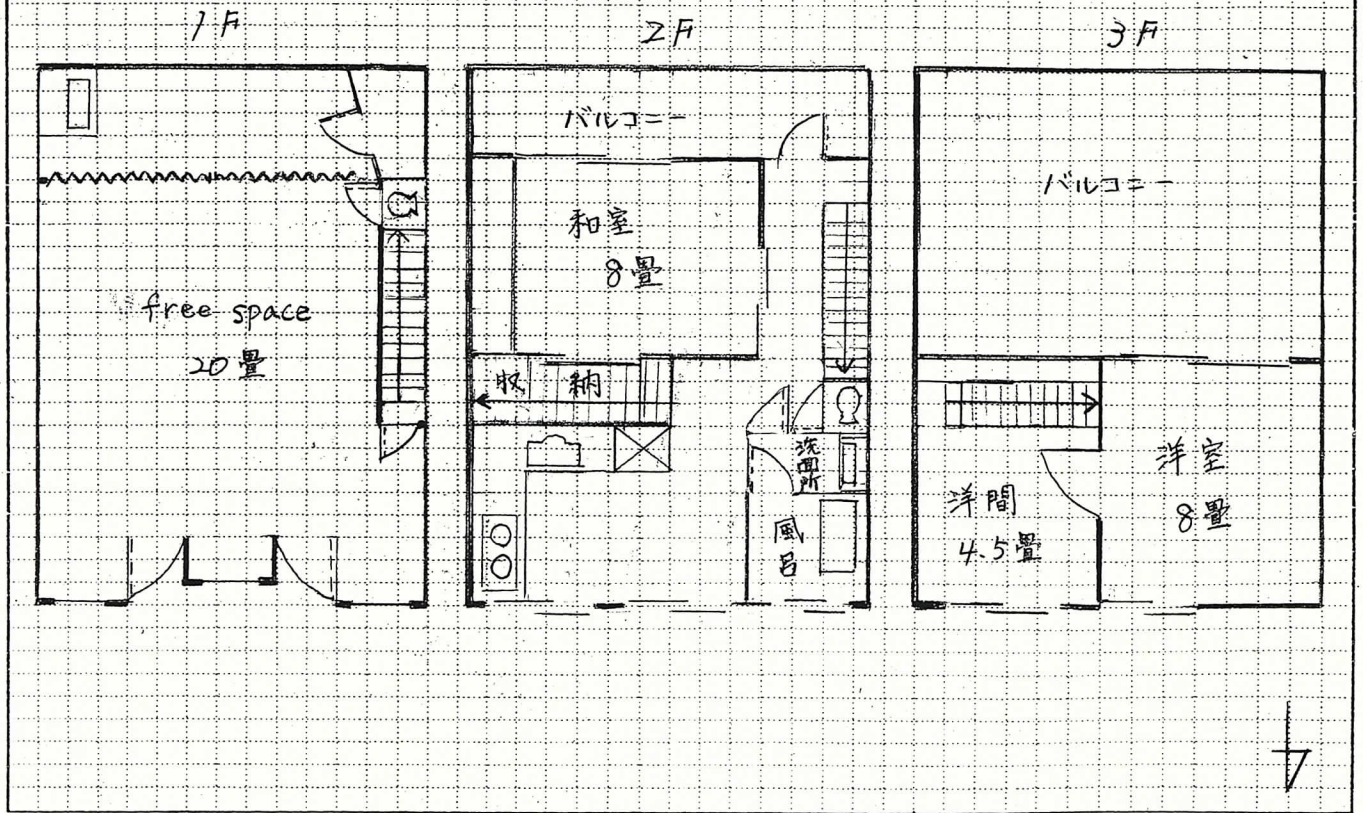 1F
free space
20畳
2F
バルコニー
和室
8畳
収納
洗面所
風呂
3F
バルコニー
洋室
8畳
洋間
4.5畳